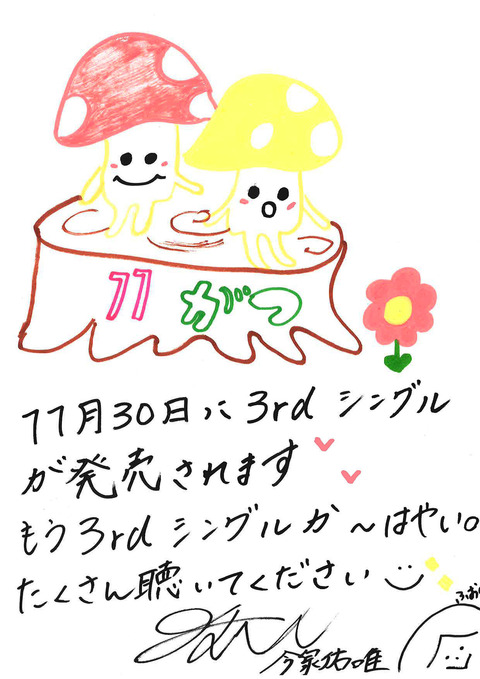 11がつ
11月30日に3rdシングル
が発売されます
もう3rdシングルか〜はやい。
たくさん聴いてください
今泉佑唯